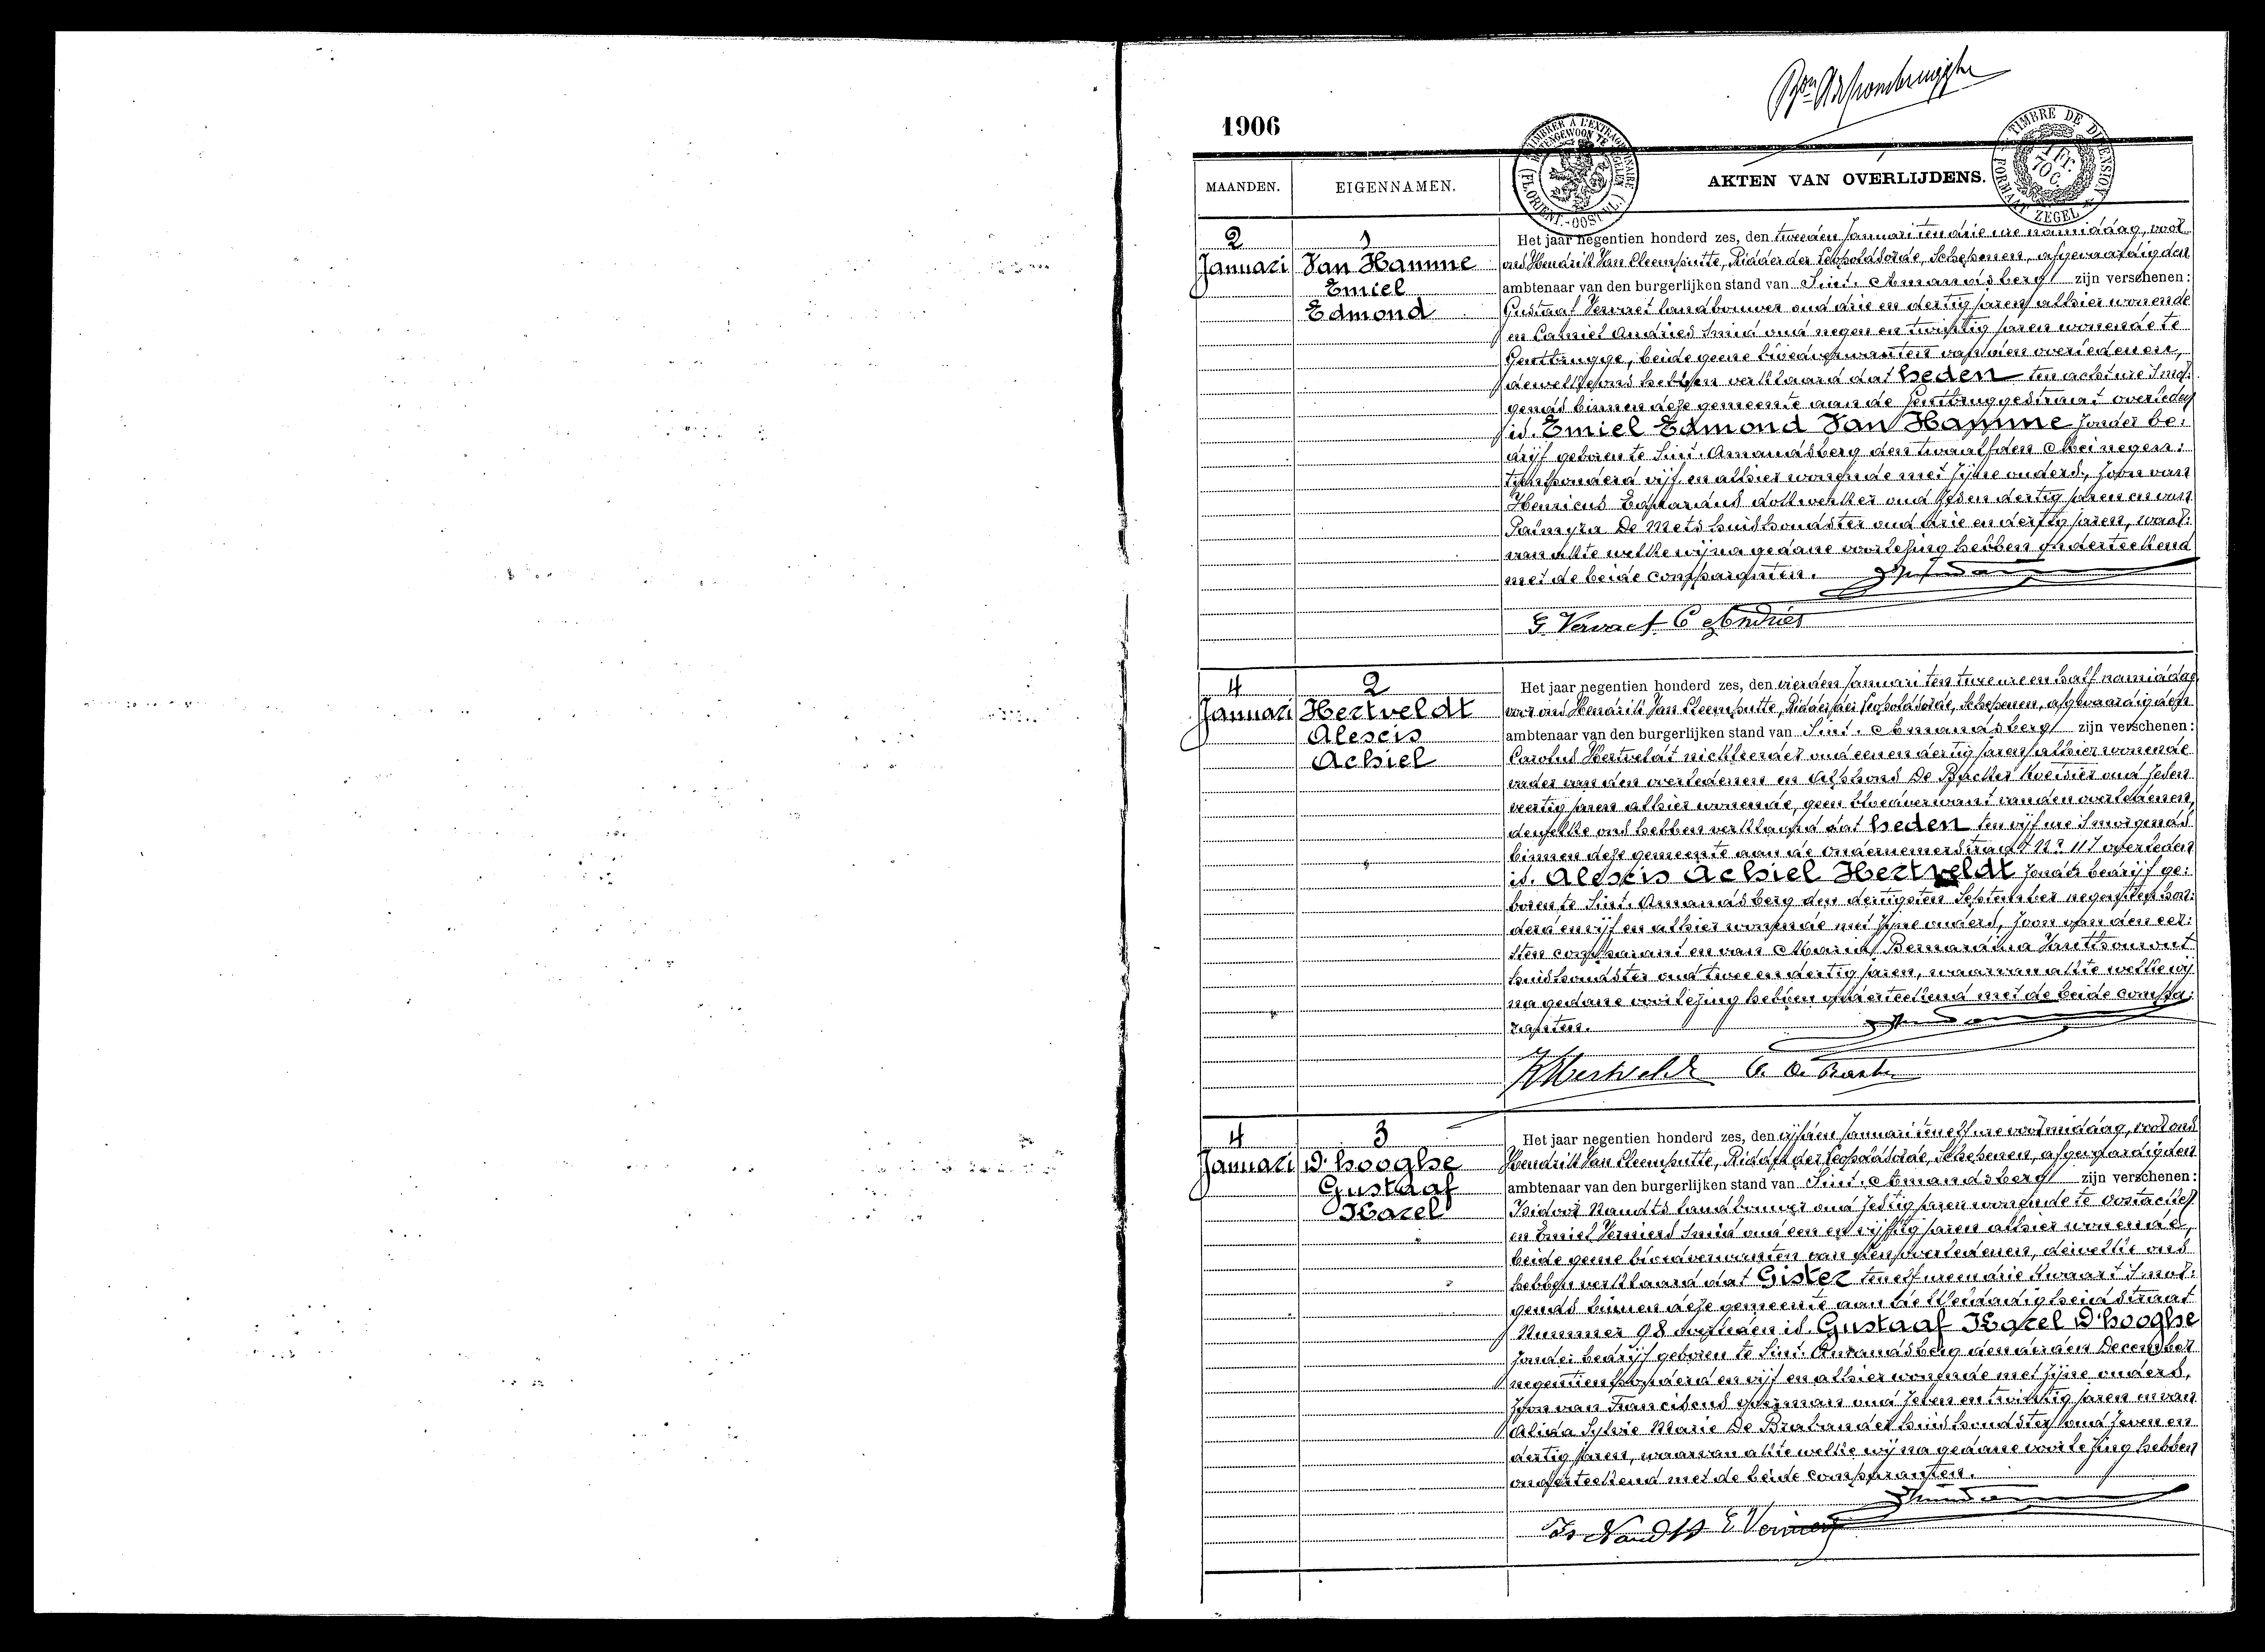 1906
MAANDEN. EIGENNAMEN. AKTEN VAN OVERLIJDENS.
TIMBRE DE DIMENSION
1 Fr.
70 C.
FORMAAT ZEGEL
2 Januari
1
Van Hamme
Emiel
Edmond
Het jaar negentien honderd zes, den tweeden Januari ten drie ure namiddag, voor
ons Hendrik Van Cleemputte, Ridder der Leopoldsorde, Schepenen, afgevaardigden
ambtenaar van den burgerlijken stand van Sint. Amandsberg zijn verschenen:
Gustaaf Vervaet landbouwer oud drie en dertig jaren alhier wonende
en Camiel Andries smid oud negen en twintig jaren wonende te
Gentbrugge, beide geene bloedverwanten van den overledenen,
dewelke ons hebben verklaard dat heden ten acht ure smor:
gends binnen deze gemeente aan de Gentbruggestraat overleden
is. Emiel Edmond Van Hamme zonder be:
drijf geboren te Sint. Amandsberg den twaalfden Mei negen:
tienhonderd vijf en alhier wonende met zijne ouders, zoon van
Henricus Eduardus dokwerker oud zes en dertig jaren en van
Palmyra De Mets huishoudster oud drie en dertig jaren, waar:
van akte welke wij na gedane voorlezing hebben onderteekend
met de beide comparanten.
G. Vervaet C Andries
4 Januari
2
Hertveldt
Alexis
Achiel
Het jaar negentien honderd zes, den vierden Januari ten twee ure en half namiddag
voor ons Hendrik Van Cleemputte, Ridder der Leopoldsorde, Schepenen, afgevaardigden
ambtenaar van den burgerlijken stand van Sint. Amandsberg zijn verschenen:
Carolus Hertveldt oud een en dertig jaren alhier wonende
vader van den overledenen en Alphons De Backer oud zes en
veertig jaren alhier wonende, geen bloedverwant van den overledenen,
dewelke ons hebben verklaard dat heden ten vijf ure smorgends
binnen deze gemeente aan de ondernemerstraat Nr 117 overleden
is. Alexis Achiel Hertveldt zonder bedrijf ge:
boren te Sint. Amandsberg den dertigsten September negentien hon:
derd en vijf en alhier wonende met zijne ouders, zoon van den eer:
sten comparant en van Maria Bernardina
huishoudster oud twee en dertig jaren, waarvan akte welke wij
na gedane voorlezing hebben onderteekend met de beide compa:
ranten.
K Hertveldt A. De Backer
4 Januari
3
D'hooghe
Gustaaf
Karel
Het jaar negentien honderd zes, den vijfden Januari ten elf ure voormiddag, voor ons
Hendrik Van Cleemputte, Ridder der Leopoldsorde, Schepenen, afgevaardigden
ambtenaar van den burgerlijken stand van Sint. Amandsberg zijn verschenen:
Isidoor Naudts landbouwer oud zestig jaren wonende te Oostacker
en Emiel Verniers smid oud een en vijftig jaren alhier wonende,
beide geene bloedverwanten van den overledenen, dewelke ons
hebben verklaard dat Gister ten elf ure en drie kwaart smor:
gends binnen deze gemeente aan de Eendrachtstraat
Nummer 98 overleden is. Gustaaf Karel D'hooghe
zonder bedrijf geboren te Sint. Amandsberg den December
negentienhonderd en vijf en alhier wonende met zijne ouders,
zoon van Franciscus oud zeven en twintig jaren en van
Alida Sylvie Marie De Brabander huishoudster oud zeven en
dertig jaren, waarvan akte welke wij na gedane voorlezing hebben
onderteekend met de beide comparanten.
Is Naudts E Verniers